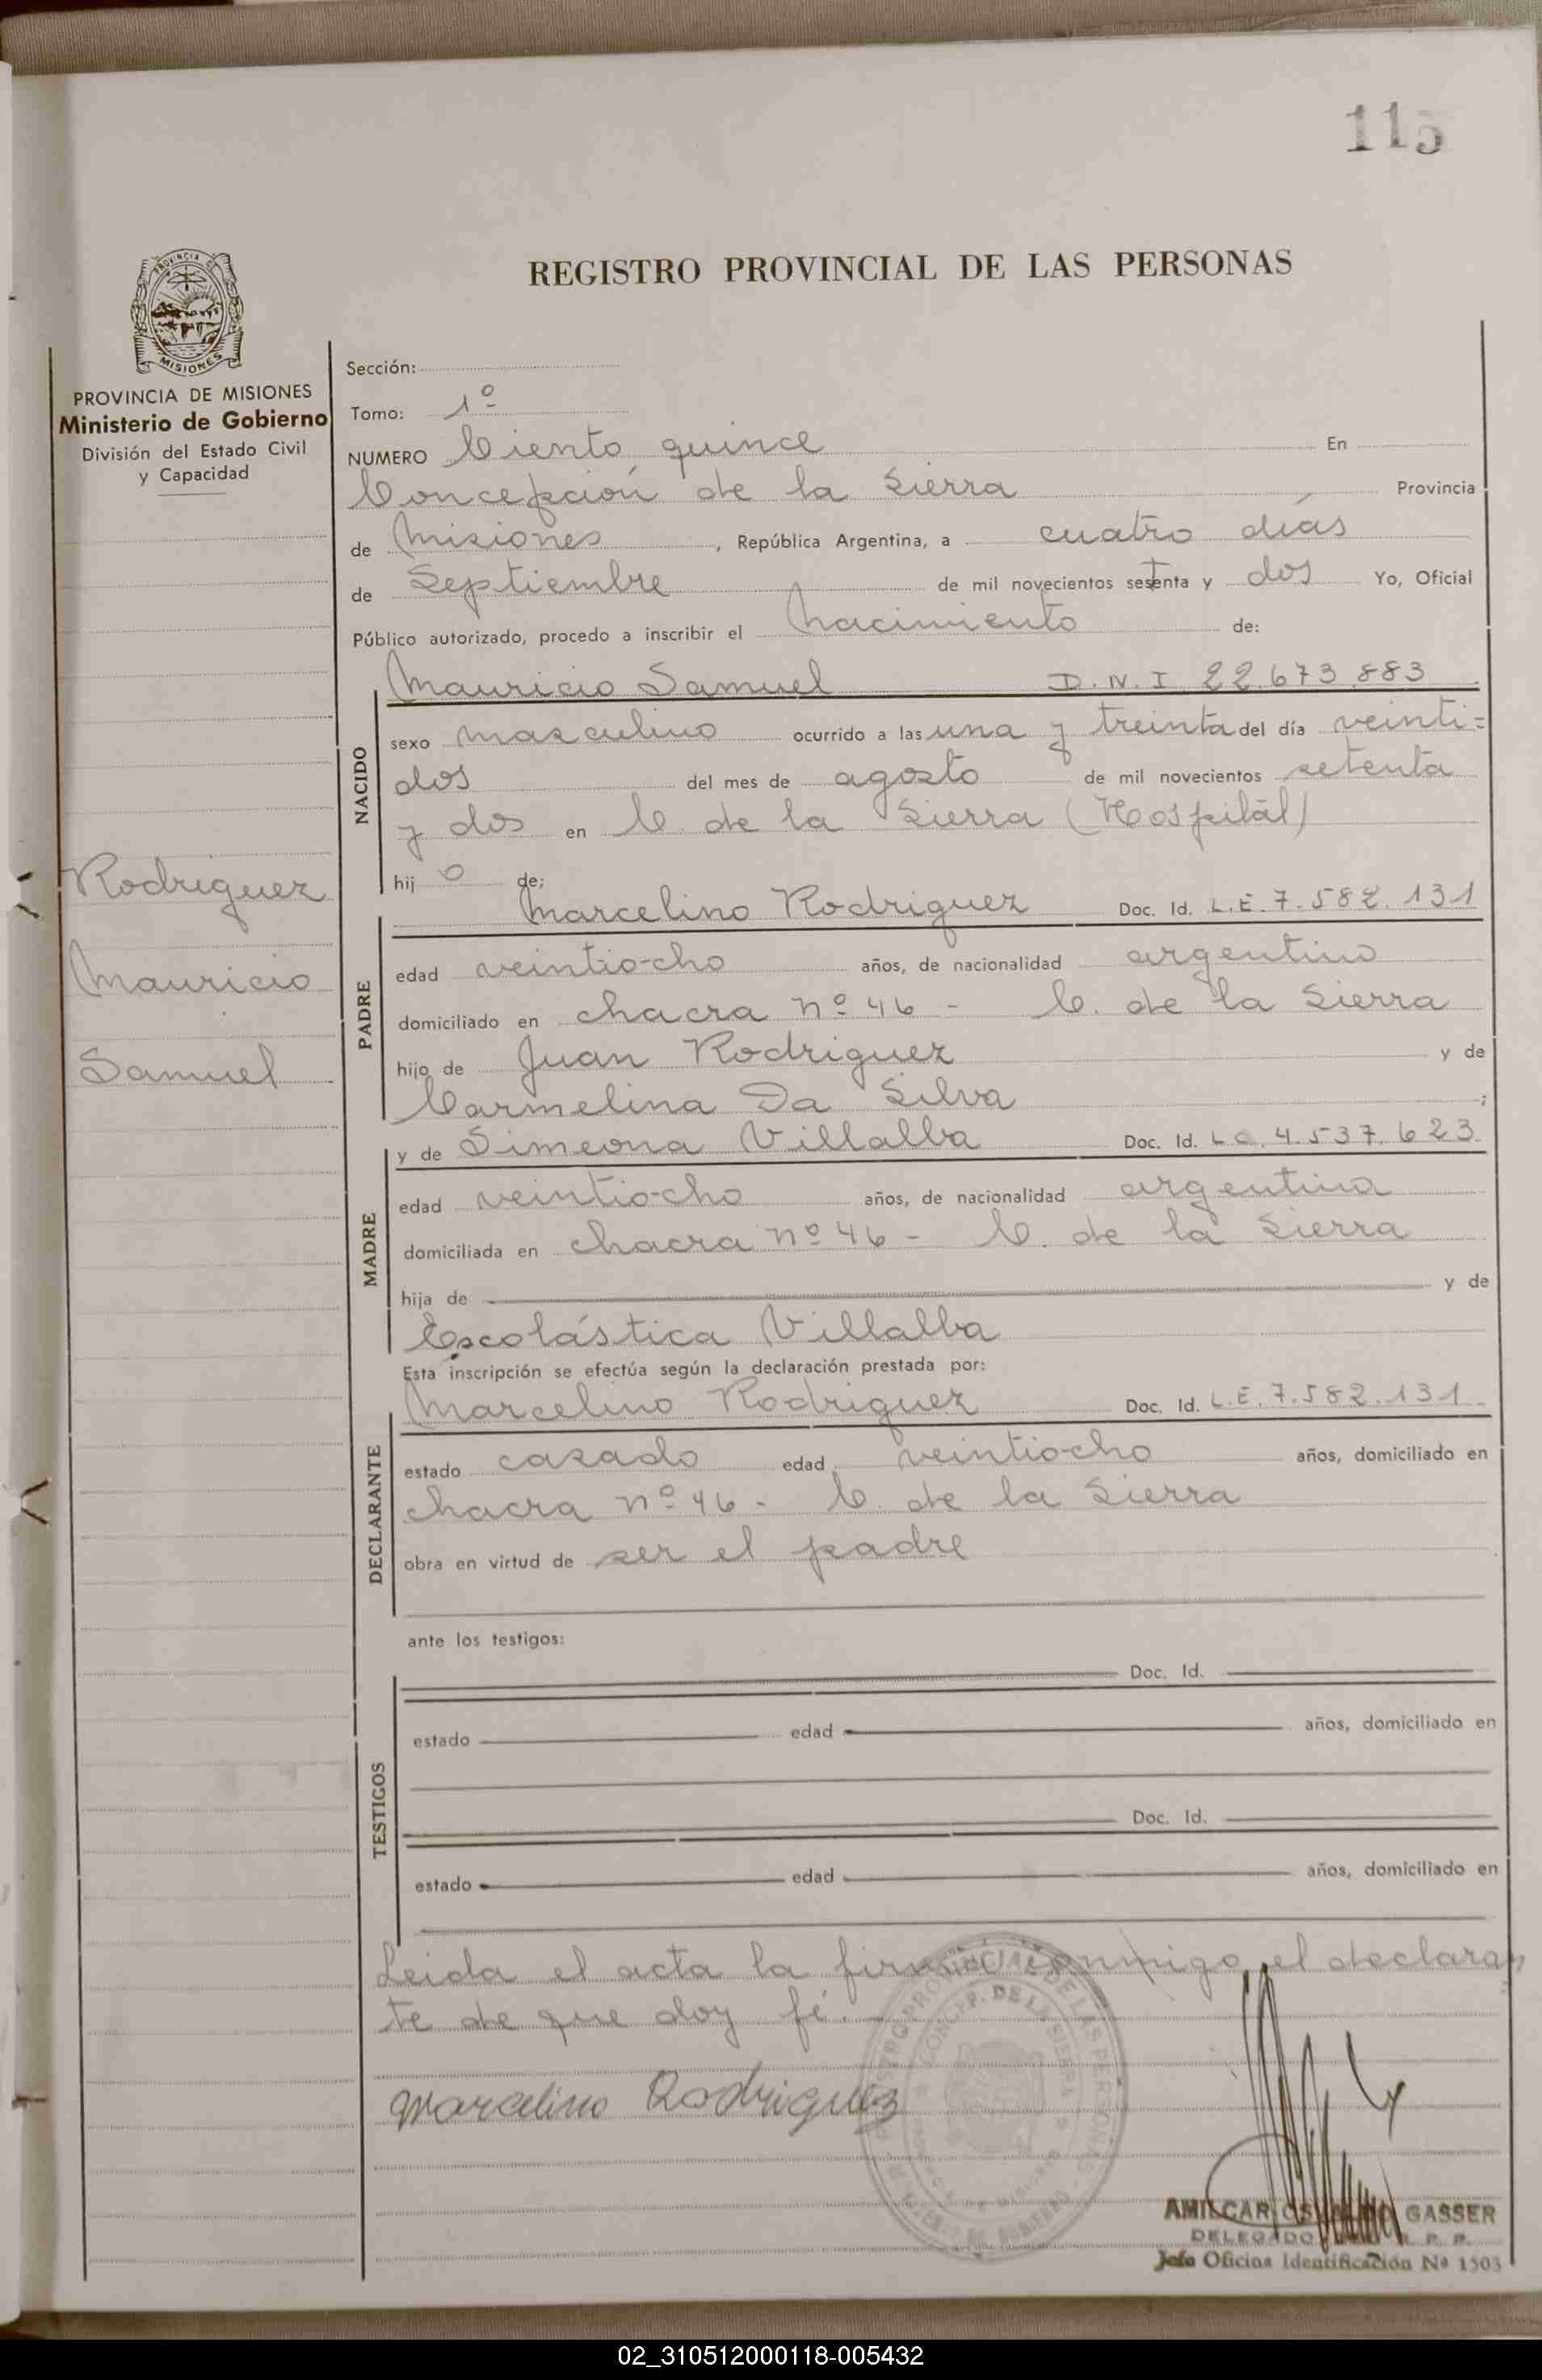 115
REGISTRO PROVINCIAL DE LAS PERSONAS
PROVINCIA DE
MISIONES
PROVINCIA DE MISIONES
Ministerio de Gobierno
División del Estado Civil
y Capacidad
Rodriguez
Mauricio
Samuel
Sección:
Tomo: 1º
NUMERO Ciento quince En
Concepción de la Sierra Provincia
de Misiones, República Argentina, a cuatro días
de Septiembre de mil novecientos setenta y dos Yo, Oficial
Público autorizado, procedo a inscribir el Nacimiento de:
NACIDO
Mauricio Samuel D.N.I 22.673.883
sexo masculino ocurrido a las una y treinta del día veinti=
dos del mes de agosto de mil novecientos setenta
y dos en C. de la Sierra (Hospital)
hij o de:
PADRE
Marcelino Rodriguez Doc. Id. L.E. 7.582.131
edad veintiocho años, de nacionalidad argentino
domiciliado en chacra nº 46 - C. de la Sierra
hijo de Juan Rodriguez y de
Carmelina Da Silva ;
MADRE
y de Simeona Villalba Doc. Id. L C. 4.537.623
edad veintiocho años, de nacionalidad argentina
domiciliada en chacra nº 46 - C. de la Sierra
hija de y de
Escolástica Villalba
Esta inscripción se efectúa según la declaración prestada por:
DECLARANTE
Marcelino Rodriguez Doc. Id. L.E. 7.582.131
estado casado edad veintiocho años, domiciliado en
chacra nº 46 - C. de la Sierra
obra en virtud de ser el padre
ante los testigos:
TESTIGOS
Doc. Id.
estado edad años, domiciliado en
Doc. Id.
estado edad años, domiciliado en
Leida el acta la firma conmigo el declaran
te de que doy fé.
Marcelino Rodriguez
REGISTRO PROVINCIAL DE LAS PERSONAS
CONCEP. DE LA SIERRA
AMILCAR GASSER
DELEGADO R. P. P.
Jefe Oficina Identificación Nº 1503
02_310512000118-005432